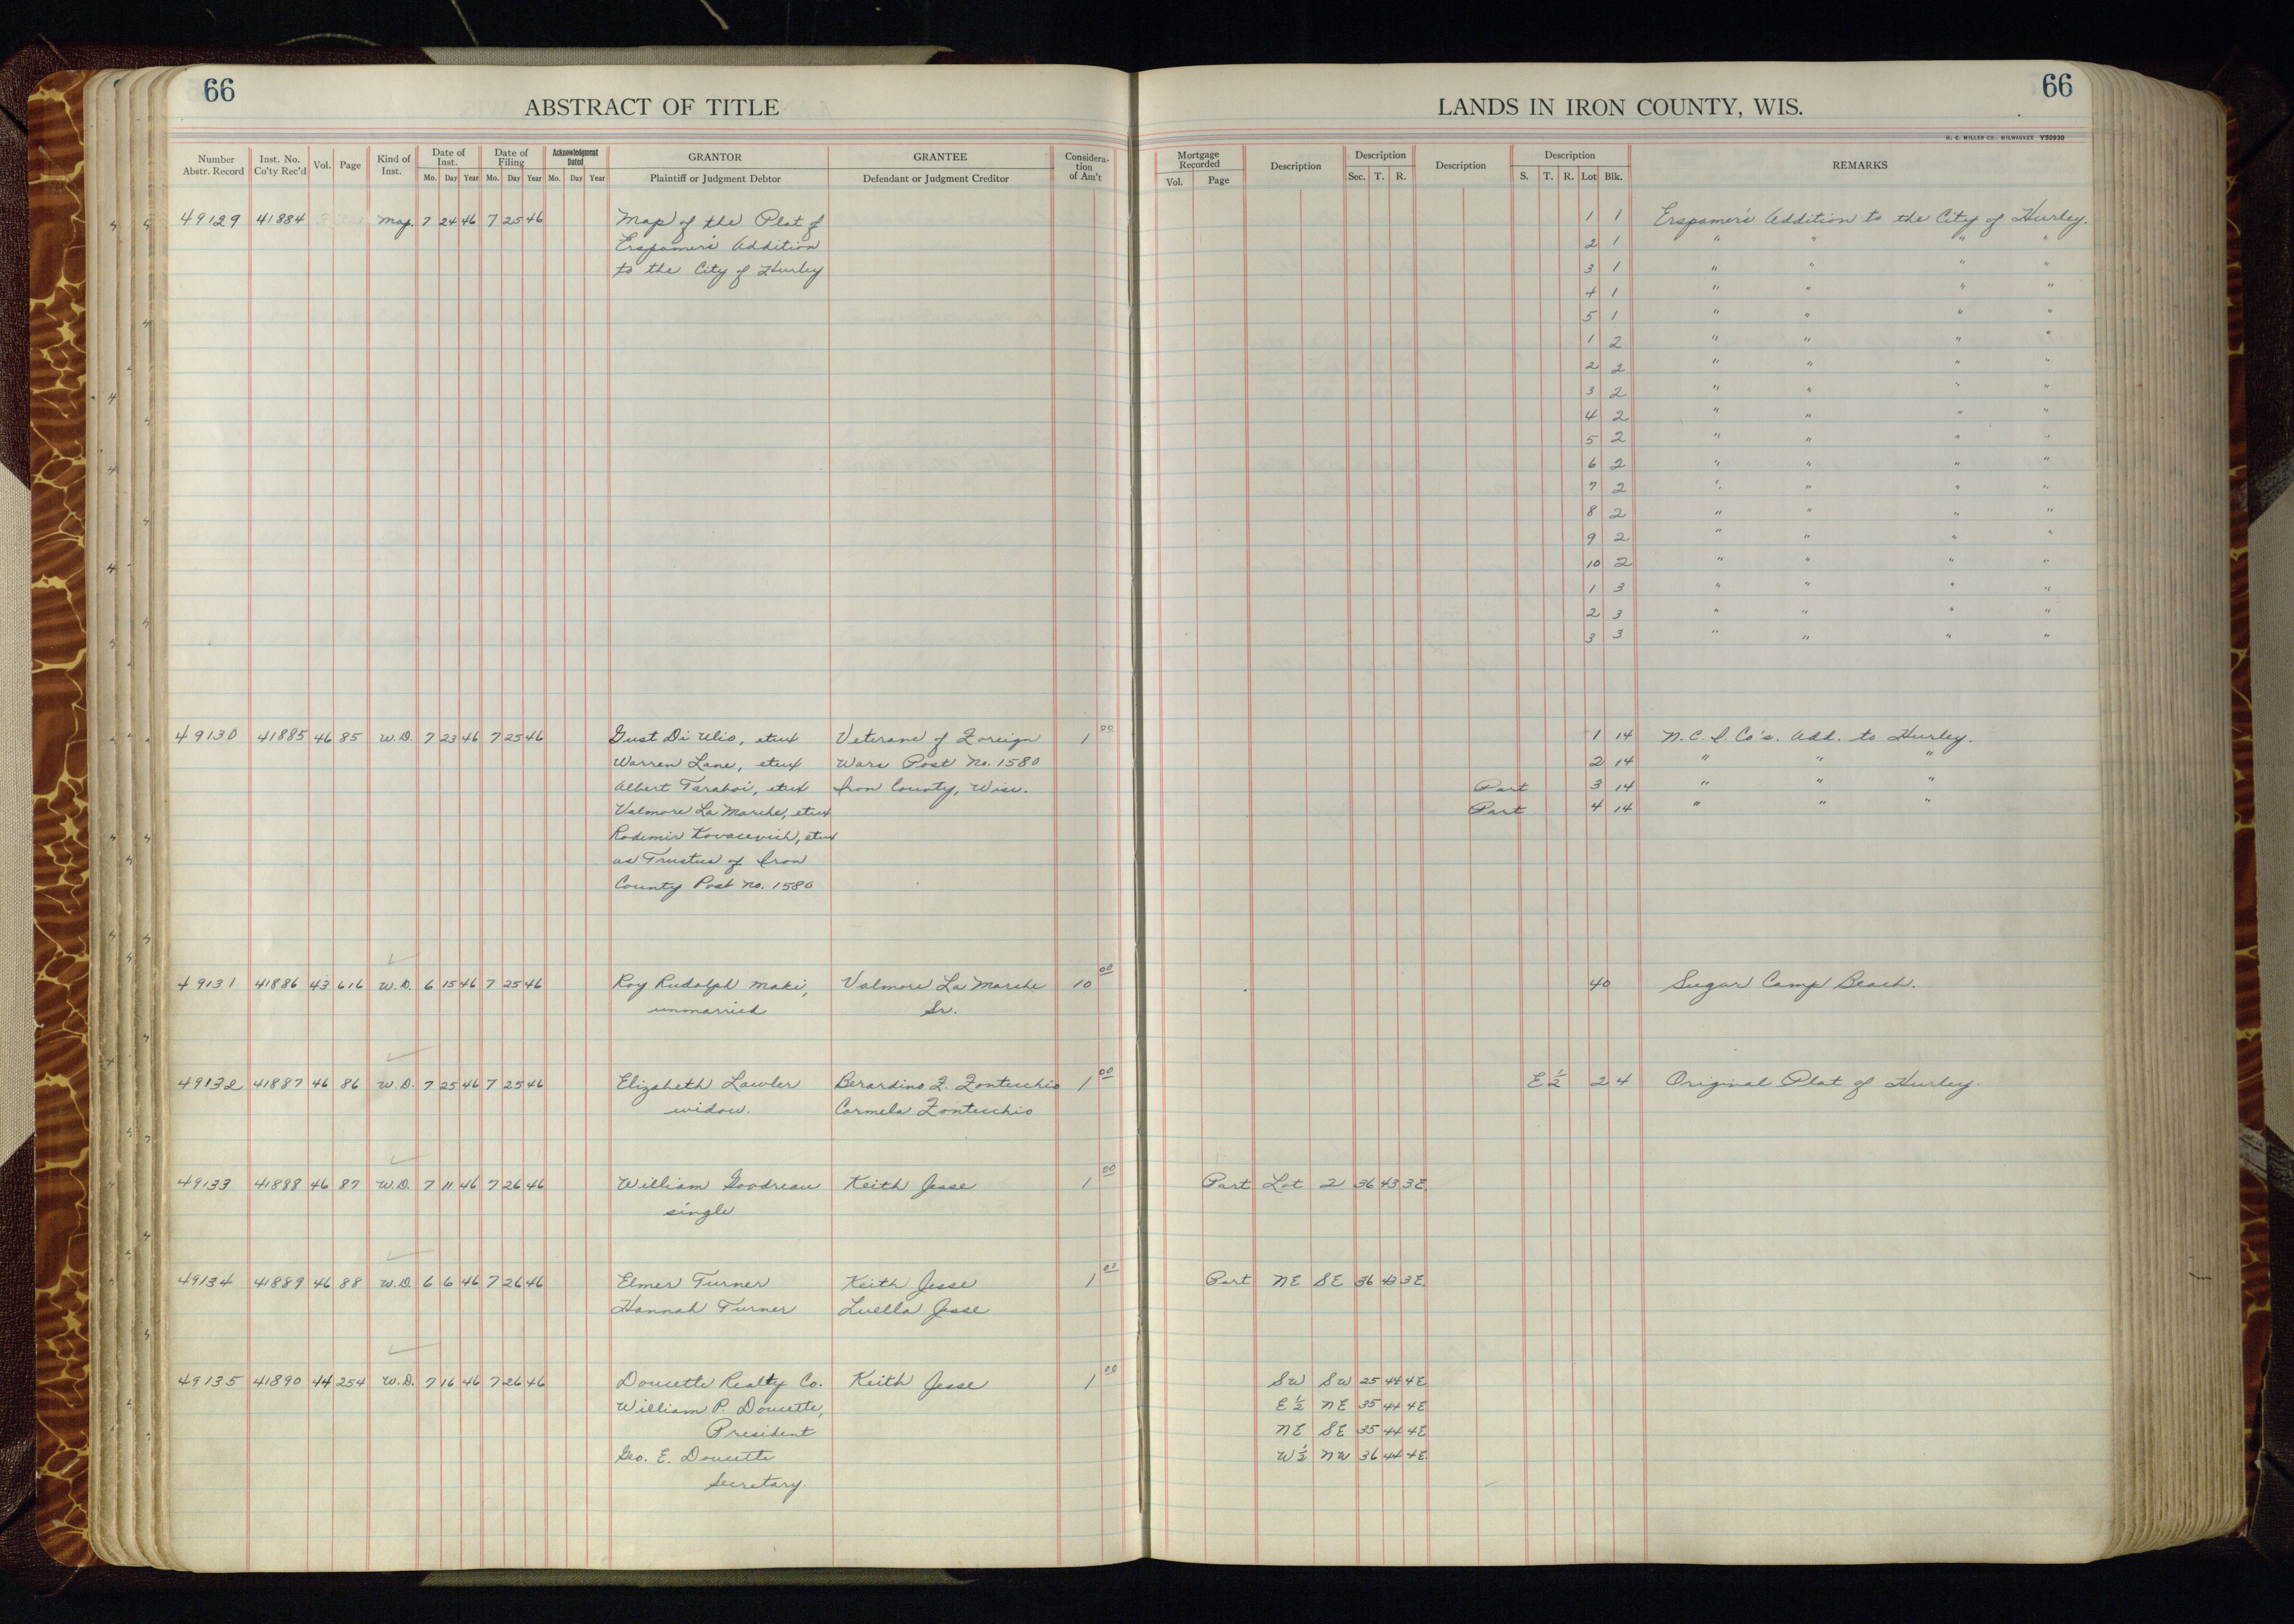 66
66
ABSTRACT OF TITLE
LANDS IN IRON COUNTY, WIS.
H. C. MILLER CO., MILWAUKEE Y50930
Number Abstr. Record Inst. No. Co'ty Rec'd Vol. Page Kind of Inst. Date of Inst. Mo. Day Year Date of Filing Mo. Day Year Acknowledgment Dated Mo. Day Year GRANTOR Plaintiff or Judgment Debtor GRANTEE Defendant or Judgment Creditor Consideration of Am't
Mortgage Recorded Vol. Page Description Description Sec. T. R. Description Description S. T. R. Lot Blk. REMARKS
49129 41884 Map. 7 24 46 7 25 46 Map of the Plat of 1 1 Erspamer's Addition to the City of Hurley.
Erspamer's Addition 2 1 " " " "
to the City of Hurley 3 1 " " " "
4 1 " " " "
5 1 " " " "
1 2 " " " "
2 2 " " " "
3 2 " " " "
4 2 " " " "
5 2 " " " "
6 2 " " " "
7 2 " " " "
8 2 " " " "
9 2 " " " "
10 2 " " " "
1 3 " " " "
2 3 " " " "
3 3 " " " "
49130 41885 46 85 W.D. 7 23 46 7 25 46 Gust Di Ulio, etux Veterans of Foreign 1 00 1 14 N.C.I. Co's. Add. to Hurley.
Warren Lane, etux Wars Post No. 1580 2 14 " " "
Albert Taraboi, etux Iron County, Wisc. Part 3 14 " " "
Valmore La Marche, etux Part 4 14 " " "
Rademir Kovacevich, etux
as Trustees of Iron
County Post No. 1580
49131 41886 43 616 W.D. 6 15 46 7 25 46 Roy Rudolph Maki, Valmore La Marche 10 00 40 Sugar Camp Beach.
unmarried Sr.
49132 41887 46 86 W.D. 7 25 46 7 25 46 Elizabeth Lawler Berardino F. Fontecchio 1 00 E ½ 2 4 Original Plat of Hurley.
widow. Carmela Fontecchio
49133 41888 46 87 W.D. 7 11 46 7 26 46 William Goodreau Keith Jesse 1 00 Part Lot 2 36 43 3E.
single
49134 41889 46 88 W.D. 6 6 46 7 26 46 Elmer Turner Keith Jesse 1 00 Part NE SE 36 43 3E.
Hannah Turner Luella Jesse
49135 41890 44 254 W.D. 7 16 46 7 26 46 Doucette Realty Co. Keith Jesse 1 00 SW SW 25 44 4E
William P. Doucette, E ½ NE 35 44 4E
President NE SE 35 44 4E
Geo. E. Doucette W ½ NW 36 44 4E.
Secretary.